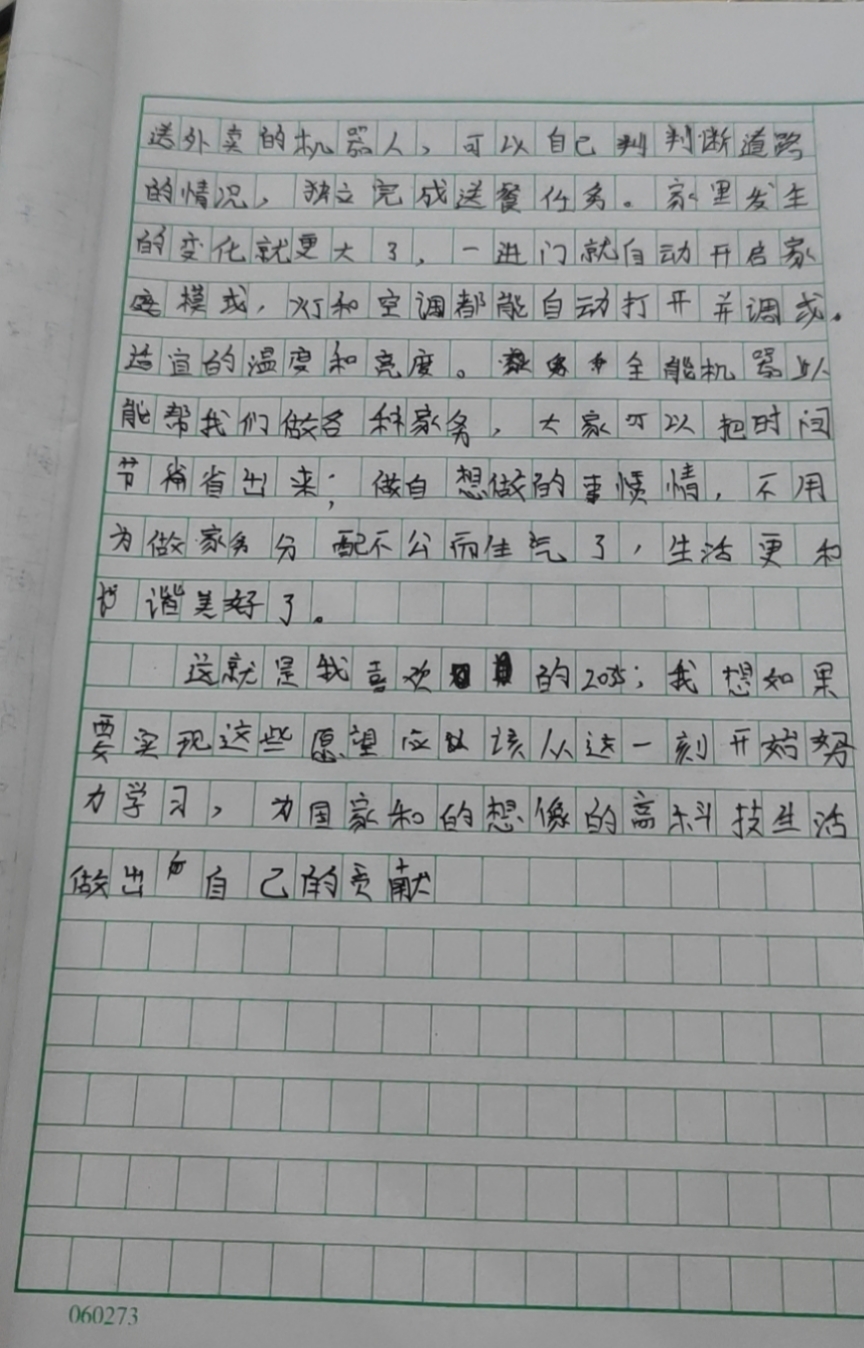 送外卖的机器人，可以自己判判断道路
的情况，独立完成送餐任务。家里发生
的变化就更大了，一进门就自动开启家
庭模式，灯和空调都能自动打开并调成。
适宜的温度和亮度。全能机器人
能帮我们做各种家务，大家可以把时间
节省出来；做自想做的事情，不用
为做家务分配不公而生气了，生活更和
谐美好了。
这就是我喜欢的；我想如果
要实现这些愿望应该从这一刻开始努
力学习，为国家和的想像的高科技生活
做出自己的贡献
060273